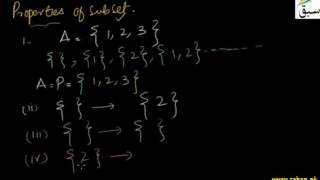 Properties of subset.
i. A = { 1, 2, 3 }
{ }, {1}, {2}, {1, 2} ----------
A = P = { 1, 2, 3 }
(ii) { } → { 2 }
(iii) { } → { }
(iv) { 2 } →
سبق
www.sabaq.pk